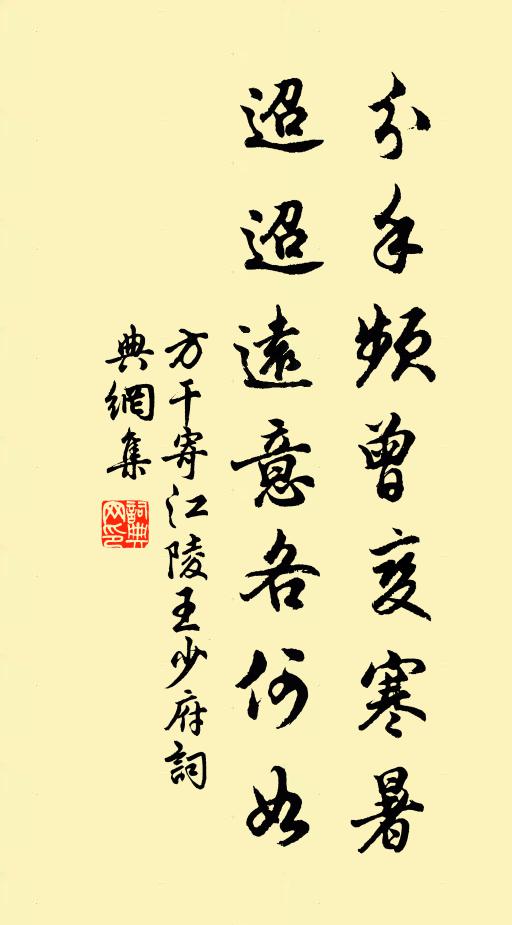 分手頻曾变寒暑
迢迢遠意各何如
方干寄江陵王少府詞
典網集
詞典
网印